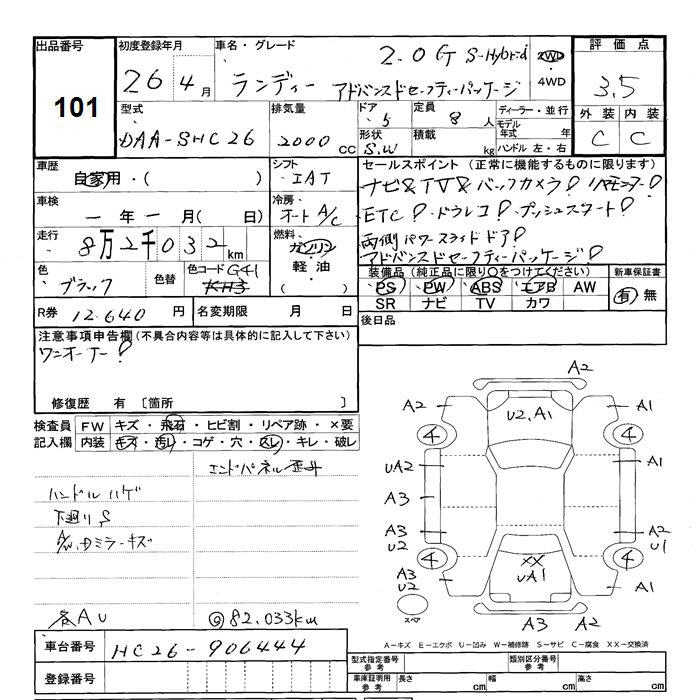 出品番号 初度登録年月 車名・グレード 2.0G S-Hybrid 2WD 評価点
101 26 4月 ランディー アドバンスドセーフティーパッケージ 4WD 3.5
型式 排気量 ドア 5 定員 8人 ディーラー・並行 外装 内装
DAA-SHC26 2000cc 形状 S.W 積載 kg モデル年式 年 ハンドル 左・右 C C
車歴 自家用・( ) シフト ・IAT セールスポイント (正常に機能するものに限ります)
車検 ー年ー月(日) 冷房 オートA/C ナビ&TV&バックカメラ!
・ETC!・ドラレコ!・プッシュスタート!
走行 8万2千032km 燃料 ガソリン・軽油・( ) 両側パワースライドドア!
アドバンスドセーフティーパッケージ!
色 ブラック 色替 色コード G41 KH3 装備品 (純正品に限り○をつけてください) 新車保証書
PS PW ABS エアB AW 有 無
SR ナビ TV カワ
R券 12.640円 名変期限 月 日 後日品
注意事項申告欄 (不具合内容等は具体的に記入して下さい)
ワンオーナー!
修復歴 有 [箇所 ]
検査員記入欄 FW キズ・飛石・ヒビ割・リペア跡・×要
内装 キズ・汚レ・コゲ・穴・スレ・キレ・破レ
エンドパネル歪み
ハンドルハゲ
下廻りS
A/W、Dミラーキズ
各AU @82.033km
A2
A2 U2.A1 A1
4 4
UA2 A1
A3
A3 U2 A2 U1
4 XX UA1 4
A3 U2 A1
スペア A3 A2
A-キズ E-エクボ U-凹み W-補修跡 S-サビ C-腐食 XX-交換済
車台番号 HC26-906444 型式指定番号 参考 類別区分番号 参考
登録番号 車庫証明用 参考 長さ cm 幅 cm 高さ cm